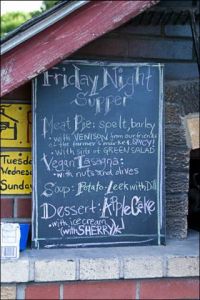 Friday Night
Supper
Meat Pie: spelt, barley
with VENISON from our friends
at the farmer's market, SPICY!
with side of GREEN SALAD
Vegan Lasagna:
with nuts and olives
Soup: Potato-Leek with Dill
Dessert: Apple Cake
with icecream
(with SHERRY)
Tuesday
Wednes
Sunday